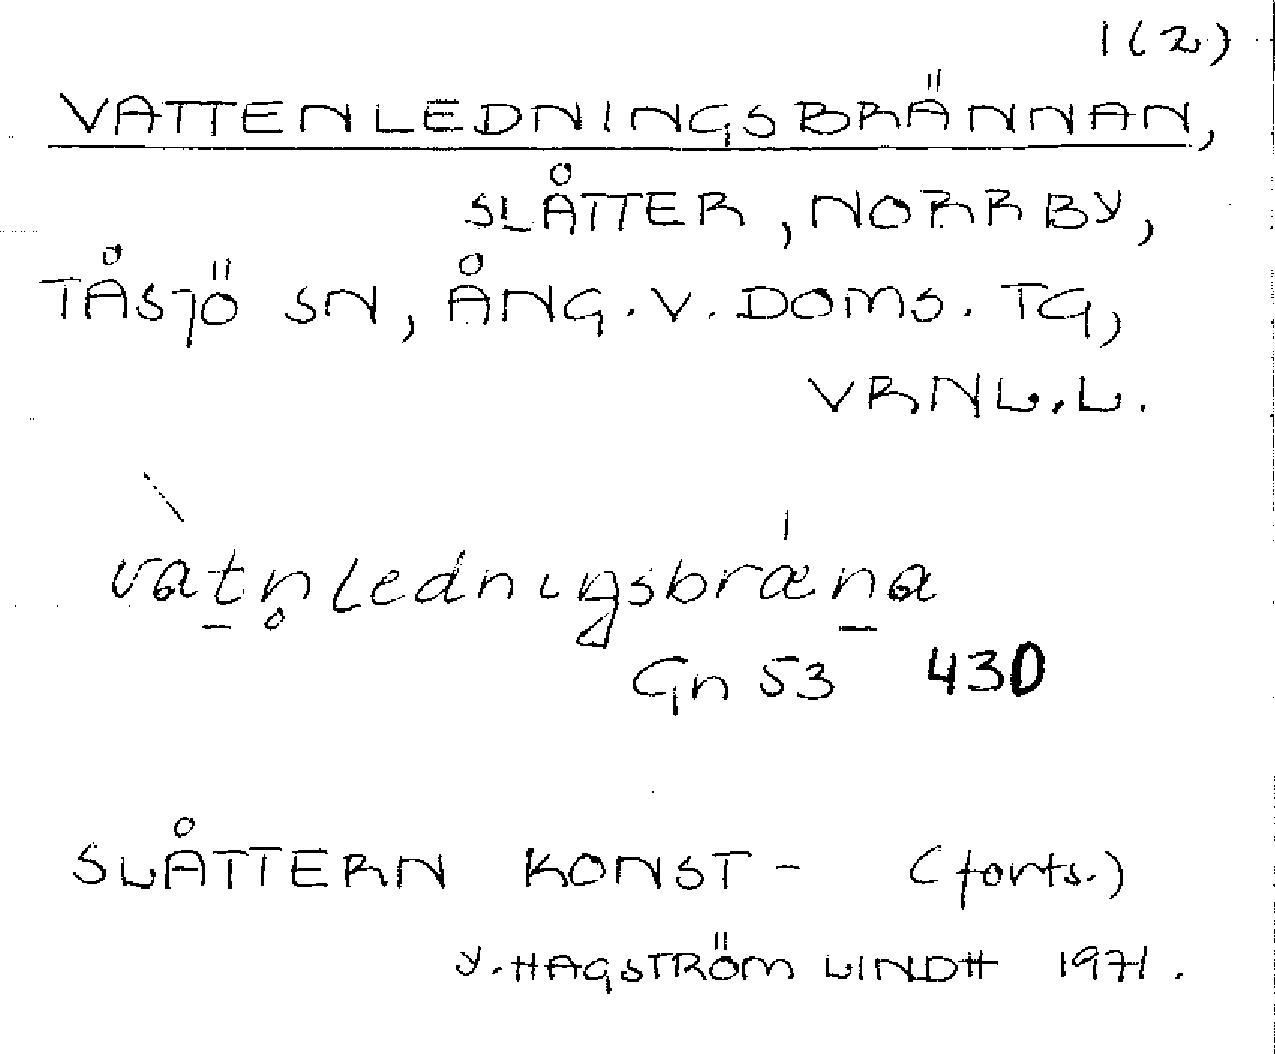 1(2)
VATTENLEDNINGSBRÄNNAN,
SLÅTTER, NORRBY,
TÅSJÖ SN, ÅNG.V.DOMS.TG,
VRNL.L.
vàtn̥ledniŋsbræ̍na
Gn 53 430
SLÅTTERN KONST- (forts.)
Y.HAGSTRÖM LINDH 1971.